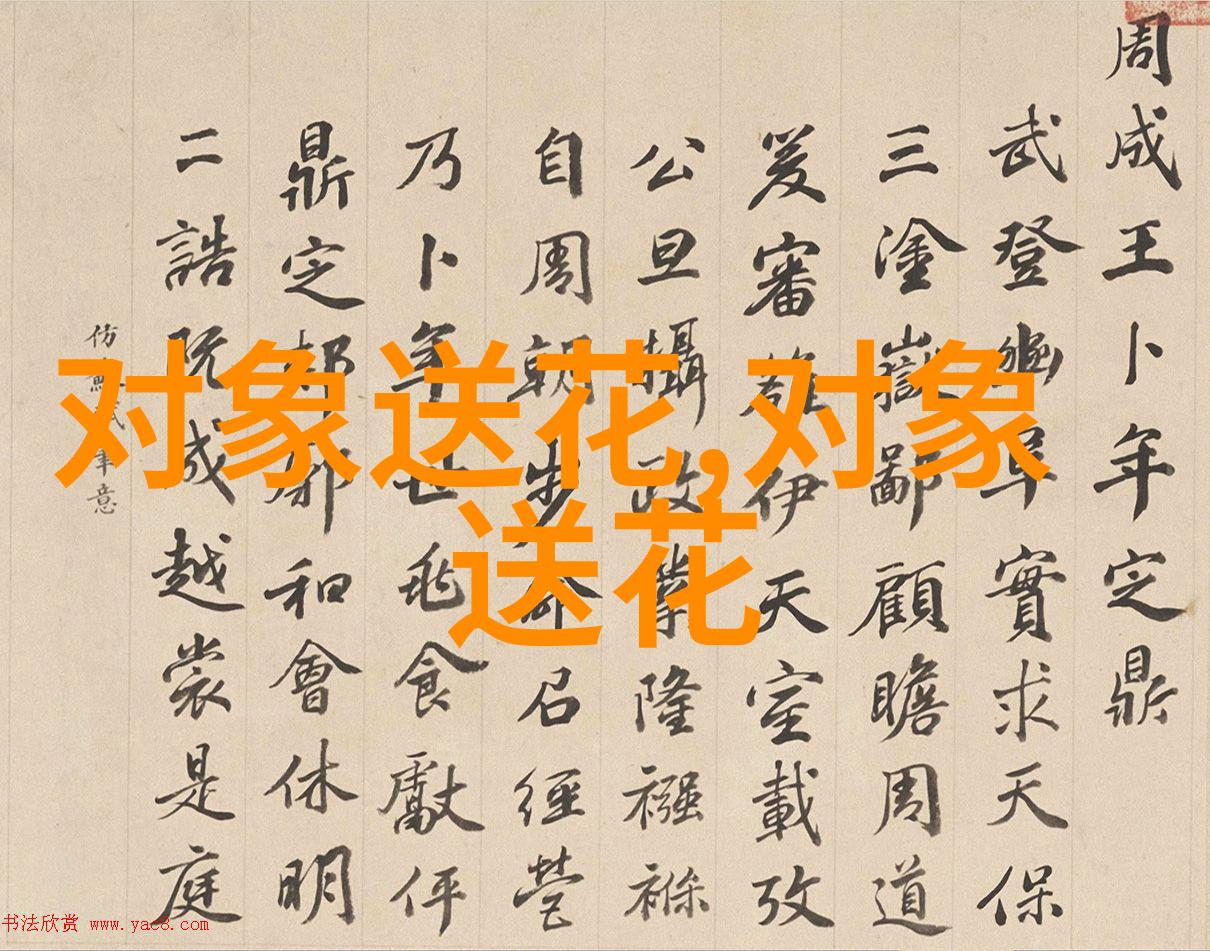 周成王卜年定鼎
武登豳阜實求天保
三塗嶽鄙顧瞻周道
爰審伊天室載攷
公旦攝政隆襁褓
自周朝步命召經營
乃卜年世兆食獻伻
鼎定郟鄏和會休明
二誥既成越裳是庭
仿意
对象送花,对象
送花
书法欣赏 www.yac8.com